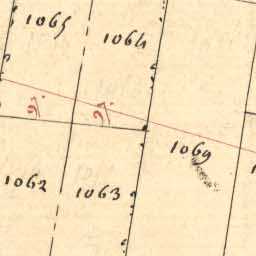 1065
1064
1069
1062
1063